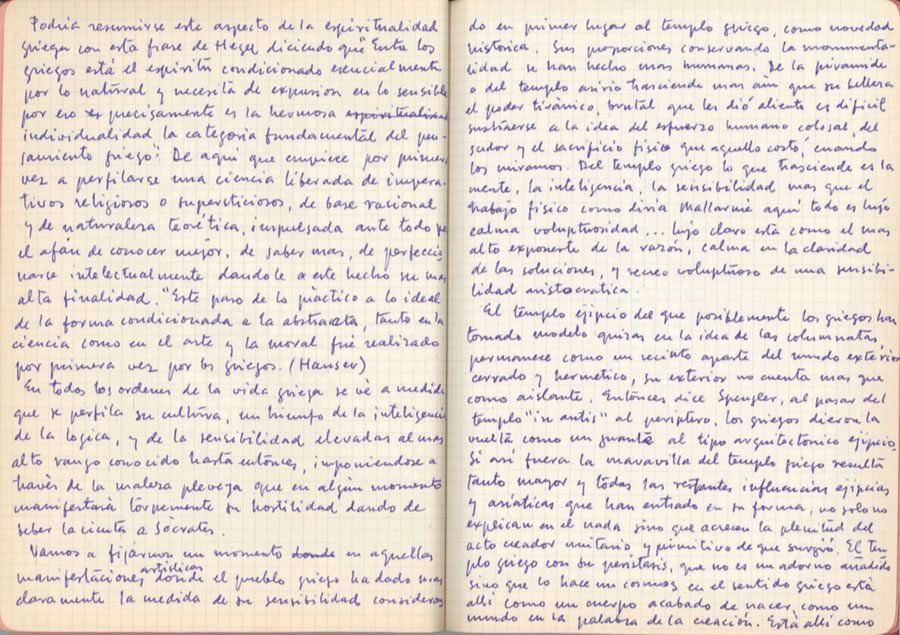 Podría resumirse este aspecto de la espiritualidad
griega con esta frase de Hegel diciendo que "Entre los
griegos está el espíritu condicionado esencialmente
por lo natural y necesita de expansion en lo sensible
por eso es precisamente es la hermosa espiritualidad
individualidad la categoría fundamental del pen-
samiento griego". De aqui que empiece por primera
vez a perfilarse una ciencia liberada de impera-
tivos religiosos o supersticiosos, de base racional
y de naturaleza teorética, impulsada ante todo por
el afán de conocer mejor, de saber mas, de perfeccio
narse intelectualmente dandole a este hecho su mas
alta finalidad. "Este paso de lo pràctico a lo ideal
de la forma condicionada a la abstracta, tanto en la
ciencia como en el arte y la moral fué realizado
por primera vez por los griegos. (Hauser)
En todos los ordenes de la vida griega se vé a medida
que se perfila su cultura, un triunfo de la inteligencia
de la logica, y de la sensibilidad elevadas al mas
alto rango conocido hasta entonces, imponiendose a
través de la maleza plevega que en algún momento
manifestaría torpemente su hostilidad dando de
beber la cicuta a Sócrates.
Vamos a fijarnos un momento donde en aquellas
manifestaciones artísticas donde el pueblo griego ha dado mas
claramente la medida de su sensibilidad consideran
do en primer lugar al templo griego, como novedad
histórica. Sus proporciones conservando la monumenta-
lidad se han hecho mas humanas. De la piramide
o del templo asirio trasciende mas aún que su belleza
el poder tiránico, brutal que les dió aliento es dificil
sustraerse a la idea del esfuerzo humano colosal, del
sudor y el sacrificio fisico que aquello costó, cuando
los miramos. Del templo griego lo que trasciende es la
mente, la inteligencia, la sensibilidad mas que el
trabajo fisico como diria Mallarmé aquí todo es lujo
calma voluptuosidad,... lujo claro está como el mas
alto exponente de la razón, calma en la claridad
de las soluciones, y secreo voluptuoso de una sensibi-
lidad aristocratica.
El templo egipcio del que posiblemente los griegos han
tomado modelo quizas en la idea de las columnatas
permanece como un recinto aparte del mundo exterior
cerrado y hermetico, su exterior no cuenta mas que
como aislante. Entónces dice Spengler, al pasar del
templo "in antis" al periptero, los griegos dieron la
vuelta como un guante al tipo arquitectónico egipcio.
Si asi fuera la maravilla del templo griego resulta
tanto mayor y todas las restantes influencias egipcias
y asiáticas que han entrado en su forma, no solo no
explican en el nada sino que acrecen la plenitud del
acto creador unitario y primitivo de que surgió. El tem
plo griego con su peristasis, que no es un adorno añadido
sino que lo hace un cosmos en el sentido griego está
allí como un cuerpo acabado de nacer, como un
mundo en la palabra de la creación. Està allí como